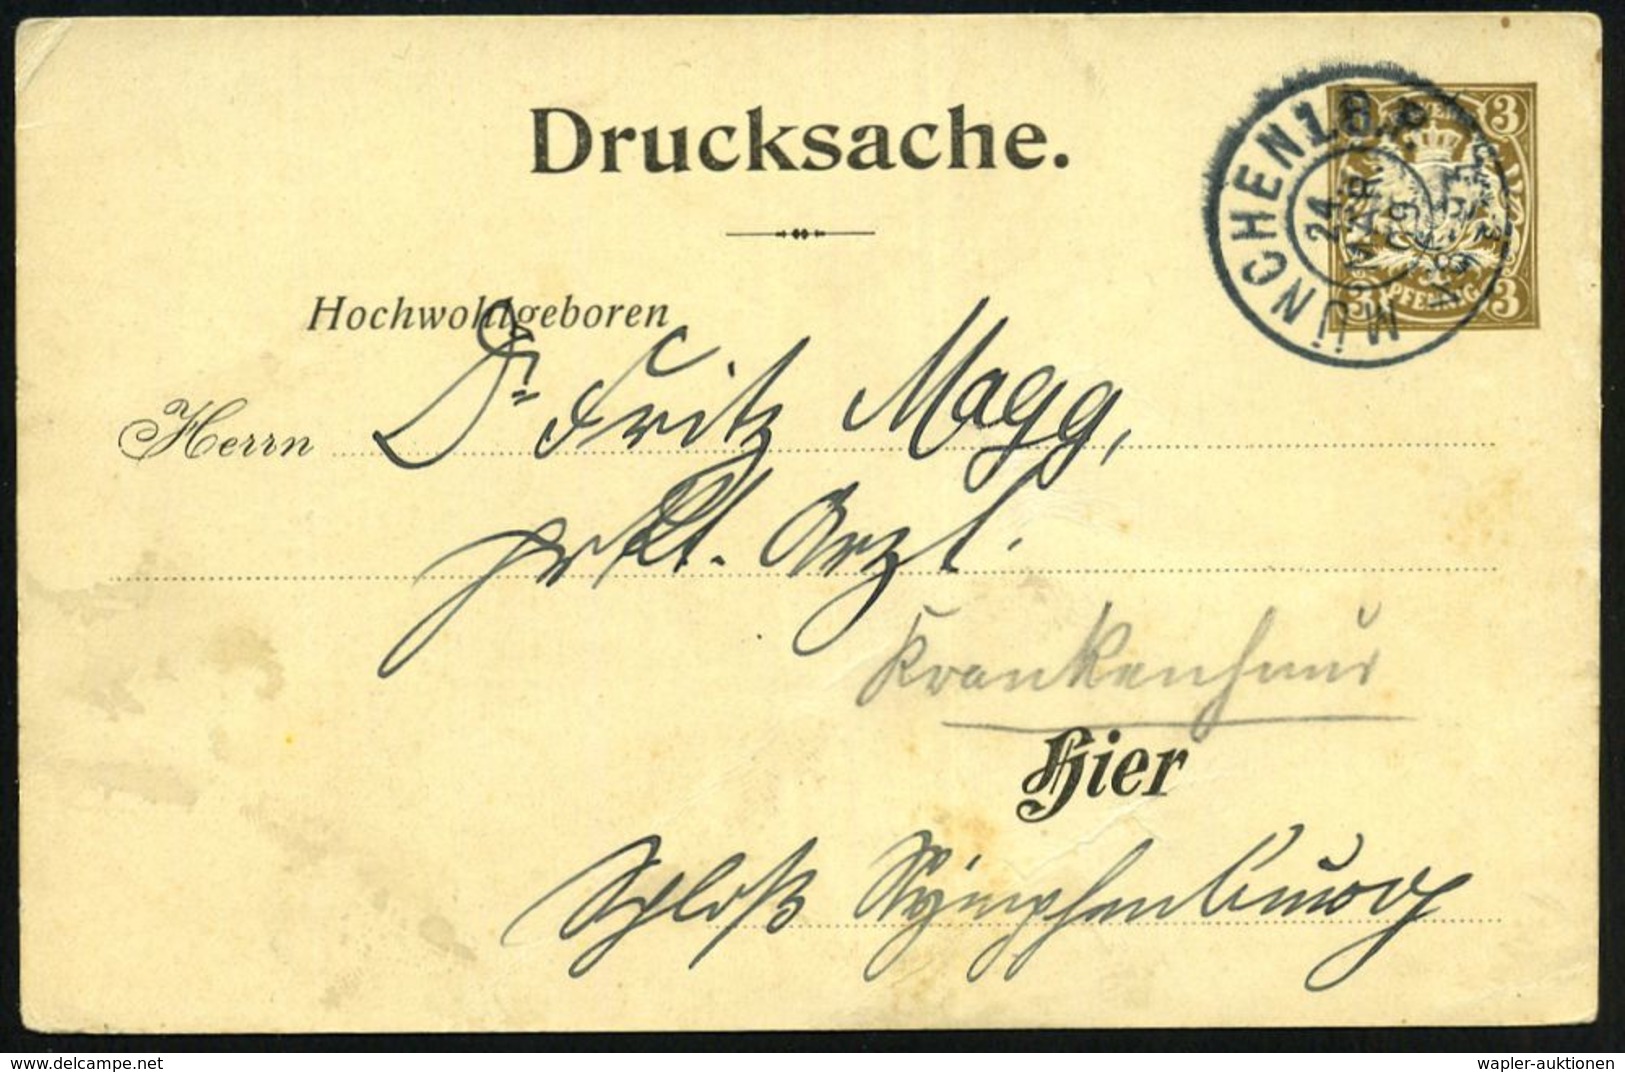 Drucksache.
MÜNCHEN 18.P.
24.
MÄR.
09
3 3
3 PFENNIG 3
Hochwohlgeboren
Herrn Dr. Fritz Magg,
prkt. Arzt.
Krankenhaus
Hier
Schloß Nymphenburg
www.delcampe.net
wapler-auktionen